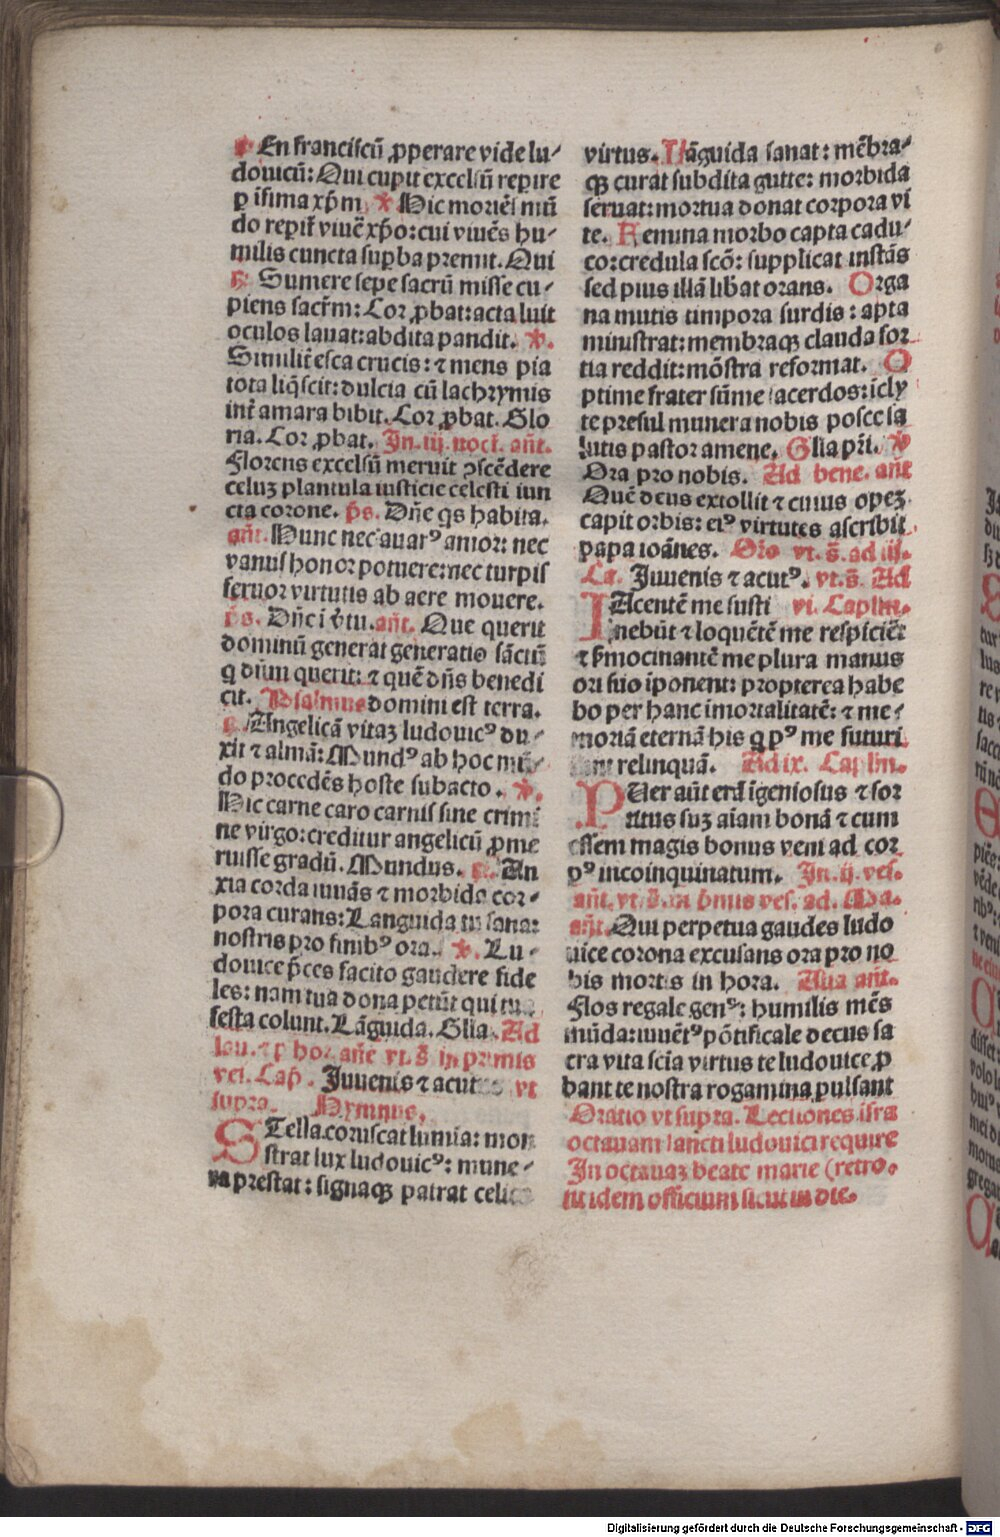 ℟ En franciscū ꝓperare vide lu⸗
douicū: Qui cupit excelsū reperire
ꝑ isima xp̄m ℣ Hic moriēs mū
do reperit viuē xp̄o: cui viuēs hu⸗
milis cuncta suꝑba premit. Qui
℟ Sumere sepe sacrū misse cu⸗
piens sacrm̄: Cor ꝓbat: acta luit
oculos lauat: abdita pandit. ℣.
Similit̄ esca crucis: ⁊ mens pia
tota liq̄scit: dulcia cū lachrymis
int̄ amara bibit. Cor ꝓbat. Glo
ria. Cor ꝓbat. In .iij. noct̄. an̄t.
Florens excelsū meruit ꝯscēdere
celuꝫ plantula iusticie celesti iun
cta corone. p̄s. Dn̄e q̄s habita.
an̄t. Nunc nec auarꝰ amor: nec
vanus honor potuere: nec turpis
feruor virtutis ab aere mouere.
p̄s. Dn̄e i v̄tu. an̄t. Que querit
dominū generat generatio sāctū
q̄ dn̄m querit: ⁊ quē dn̄s benedi
cit. Psalmus domini est terra.
℟. Angelicā vitaꝫ ludouicꝰ du⸗
xit ⁊ almā: Mundꝰ ab hoc mū⸗
do procedēs hoste subacto. ℣.
Hic carne caro carnis sine crimi
ne virgo: creditur angelicū ꝓme
ruisse gradū. Mundus. ℟. An
xia corda iuuās ⁊ morbida cor⸗
pora curans: Languida tu sana:
nostris pro finibꝰ ora. ℣. Lu⸗
douice p̄ces facito gaudere fide
les: nam tua dona petūt qui tua
festa colunt. Lāguida. Glia. Ad
lau. ⁊ ꝑ hor. an̄e vt. s̄. in primis
ves. Cap̄. Iuuenis ⁊ acutus vt
supra. Hymnus.
STella coruscat lumina: mon
strat lux ludouicꝰ: mune⸗
ra prestat: signaqꝫ patrat celica
virtus. Lāguida sanat: mēbra⸗
qꝫ curat subdita gutte: morbida
seruat: mortua donat corpora vi
te. Femina morbo capta cadu⸗
co: credula scō: supplicat instās
sed pius illā lib̄at orans. Orga
na mutis timpora surdis: apta
ministrat: membraqꝫ clauda for
tia reddit: mōstra reformat. O
ptime frater sūme sacerdos: īcly
te presul munera nobis posce sa
lutis pastor amene. Glia pri. ℣
Ora pro nobis. Ad bene. an̄t
Quē deus extollit ⁊ cuius opeꝫ
capit orbis: eiꝰ virtutes ascribit
papa ioānes. Or̄o vt. s̄. ad iij.
Ca. Iuuenis ⁊ acutꝰ. vt. s̄. Ad
IAcentē me susti vi. Caplm.
nebūt ⁊ loquētē me respiciēt
⁊ s̄mocinantē me plura manus
ori suo īponent: propterea habe
bo per hanc īmortalitatē: ⁊ me⸗
moriā eternā his q̄ pꝰ me futuri
sunt relinquā. Ad ix. Caplm.
PUer aūt erā īgeniosus ⁊ sor
titus suꝫ aīam bonā ⁊ cum
essem magis bonus veni ad cor
pꝰ incoinquinatum. In .ij. ves.
an̄t. vt. s̄. in p̄mis ves. ad. Ma.
an̄t. Qui perpetua gaudes ludo
uice corona excusans ora pro no
bis mortis in hora. Alia an̄t.
Flos regale genꝰ: humilis mēs
mūda: iuuētꝰ pōtificale decus sa
cra vita scīa virtus te ludouice ꝓ
bant te nostra rogamina pulsant
Oratio vt supra. Lectiones īfra
octauam sancti ludouici require
In octauaꝫ beate marie (retro.
fit idem officium sicut in die.
Digitalisierung gefördert durch die Deutsche Forschungsgemeinschaft - DFG